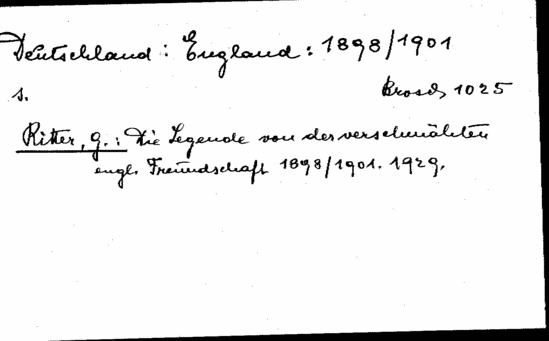 Deutschland: England: 1898/1901
s. Brosch 1025
Ritter, G.: Die Legende von der verschmähten
engl. Freundschaft 1898/1901. 1929.